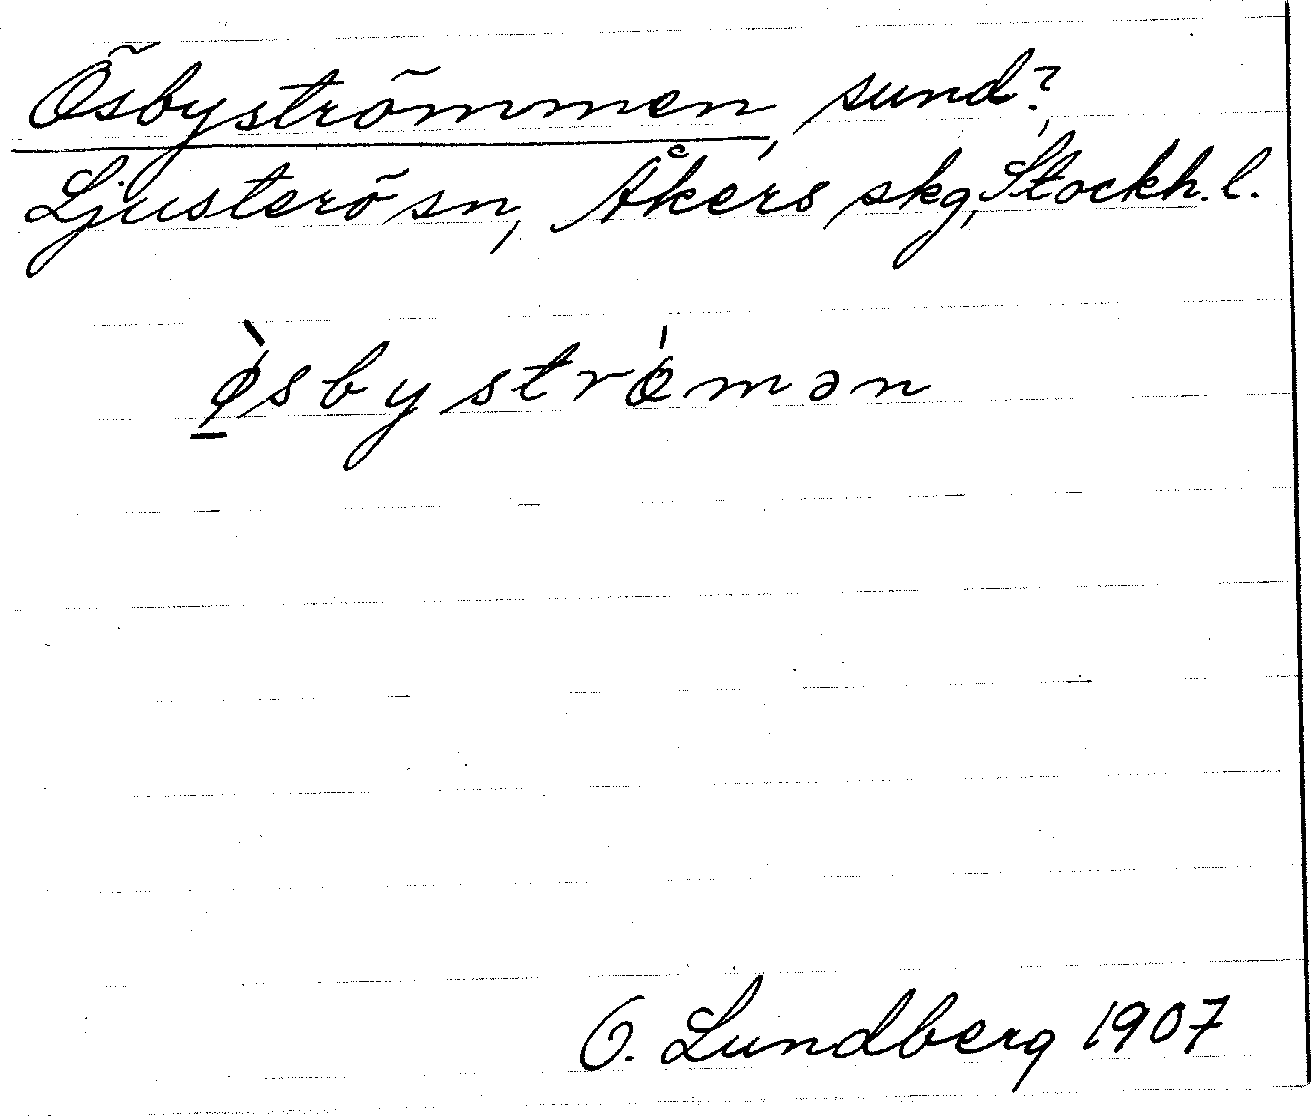 Ösbyströmmen, sund?,
Ljusterö sn, Åkers skg, Stockh. l.
ø̲̀sbystrǿmən
O. Lundberg 1907